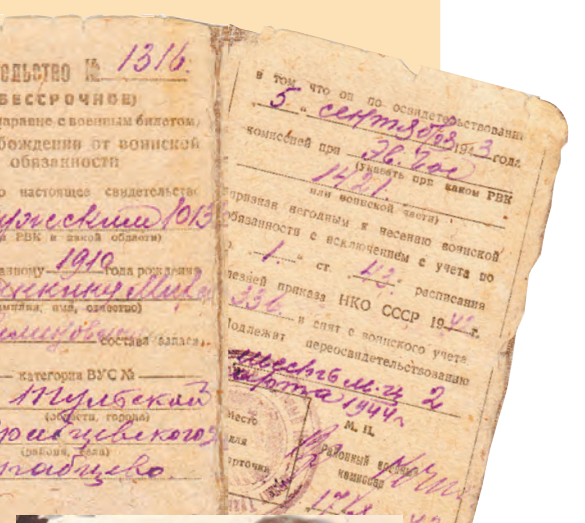 ельство № 1316.
(БЕССРОЧНОЕ)
наравне с военным билетом)
бождении от воинской
обязанности
о настоящее свидетельство
1013
РВК и какой области)
анному 1910 года рождения
имя, отчество)
состава запаса,
категория ВУС №
Тульской
(области, города)
(района, села)
в том, что он по освидетельствовании
" 5 " сентября 1943 года
комиссией при Эв. Гос
(указать при каком РВК
1421.
или воинской части)
признан негодным к несению воинской
обязанности с исключением с учета по
1. " ст. 43. расписания
болезней приказа НКО СССР 1942 г.
336. и снят с воинского учета
Подлежит переосвидетельствованию
шесть м-ц 2
марта 1944 г
Место
для
карточки
М. П.
Районный военный
комиссар